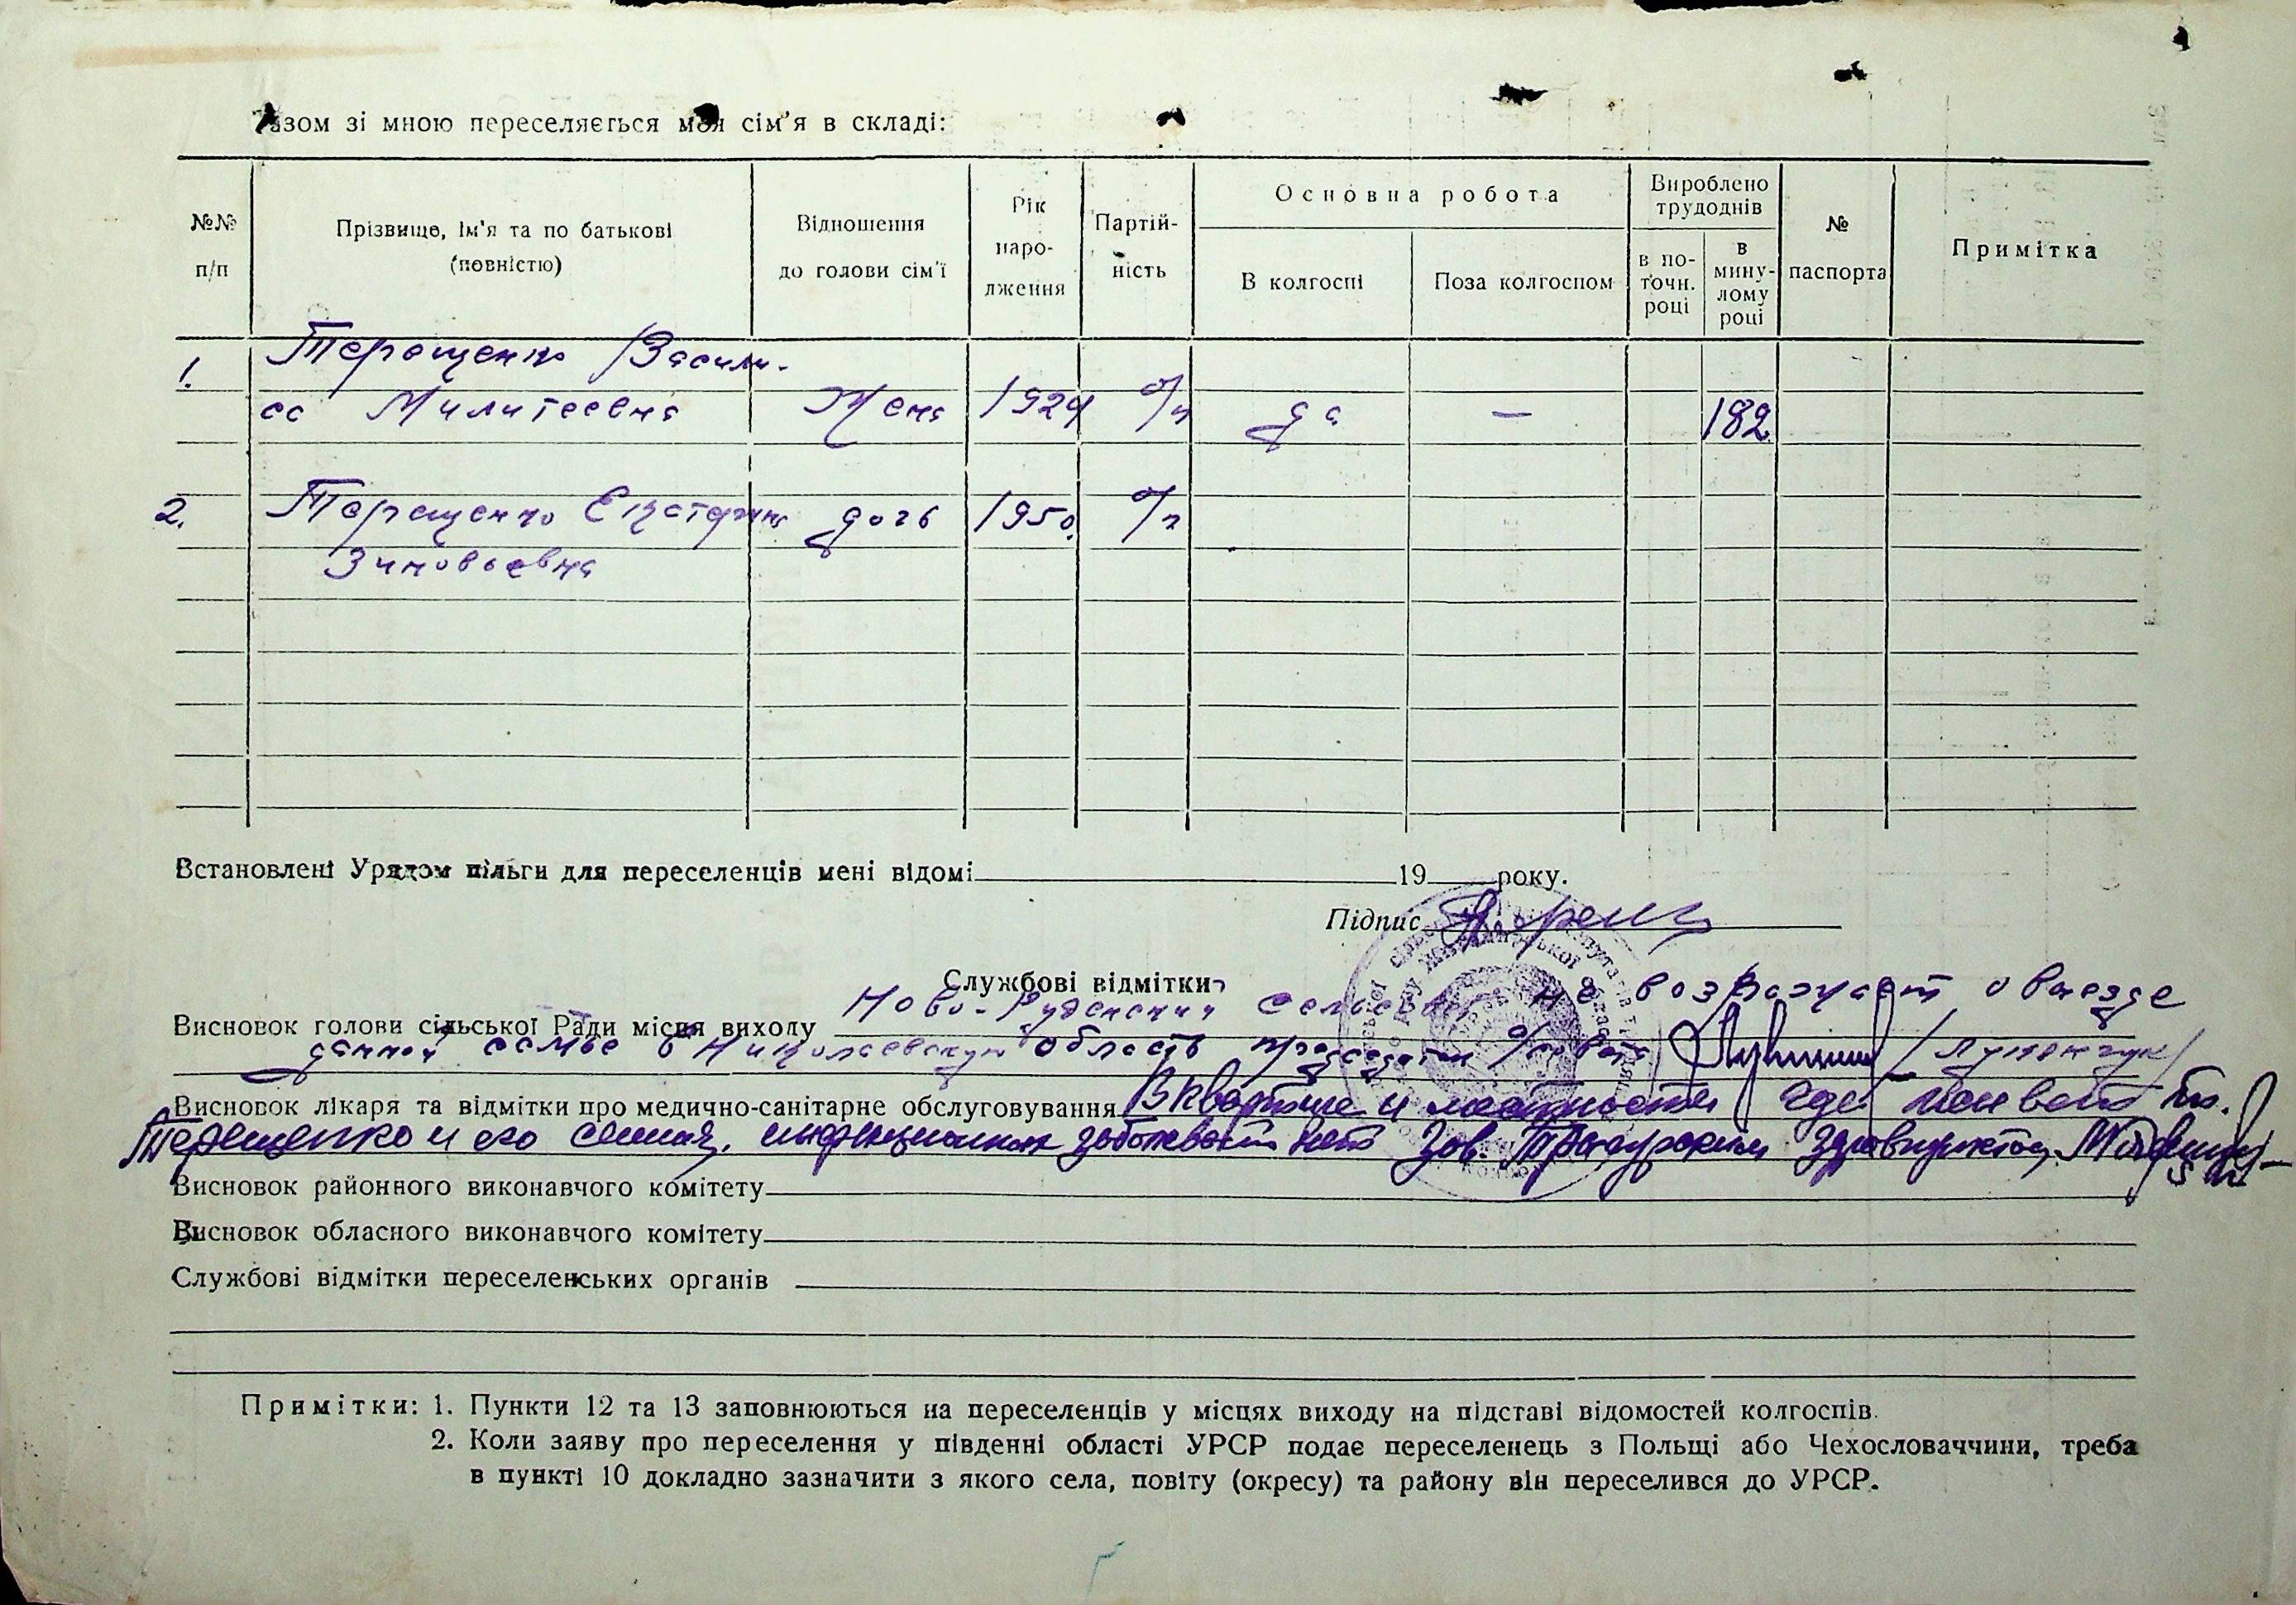 Разом зі мною переселяється моя сім'я в складі:
№№ п/п
Прізвище, ім'я та по батькові (повністю)
Відношення до голови сім'ї
Рік наро- дження
Партій- ність
Основна робота
В колгоспі
Поза колгоспом
Вироблено трудоднів
в по- точн. році
в мину- лому році
№ паспорта
Примітка
1. Терещенко Васили-
са Милитеевна Жена 1924 б/п да — 182
2. Терещенко Екатерина дочь 1950 б/п
Зиновьевна
Встановлені Урядом пільги для переселенців мені відомі 19 року.
Підпис
Службові відмітки
Висновок голови сільської Ради місця виходу Ново-Руднянский сельсовет не возражает о выезде
данной семье в Николаевскую область председатель с/совета /Лукенчук/
Висновок лікаря та відмітки про медично-санітарне обслуговування В квартире и местности где гр.
Терещенко и его семья, инфекционных заболеваний нет Зав. здравпунктом
Висновок районного виконавчого комітету
Висновок обласного виконавчого комітету
Службові відмітки переселенських органів
Примітки: 1. Пункти 12 та 13 заповнюються на переселенців у місцях виходу на підставі відомостей колгоспів.
2. Коли заяву про переселення у південні області УРСР подає переселенець з Польщі або Чехословаччини, треба
в пункті 10 докладно зазначити з якого села, повіту (окресу) та району він переселився до УРСР.